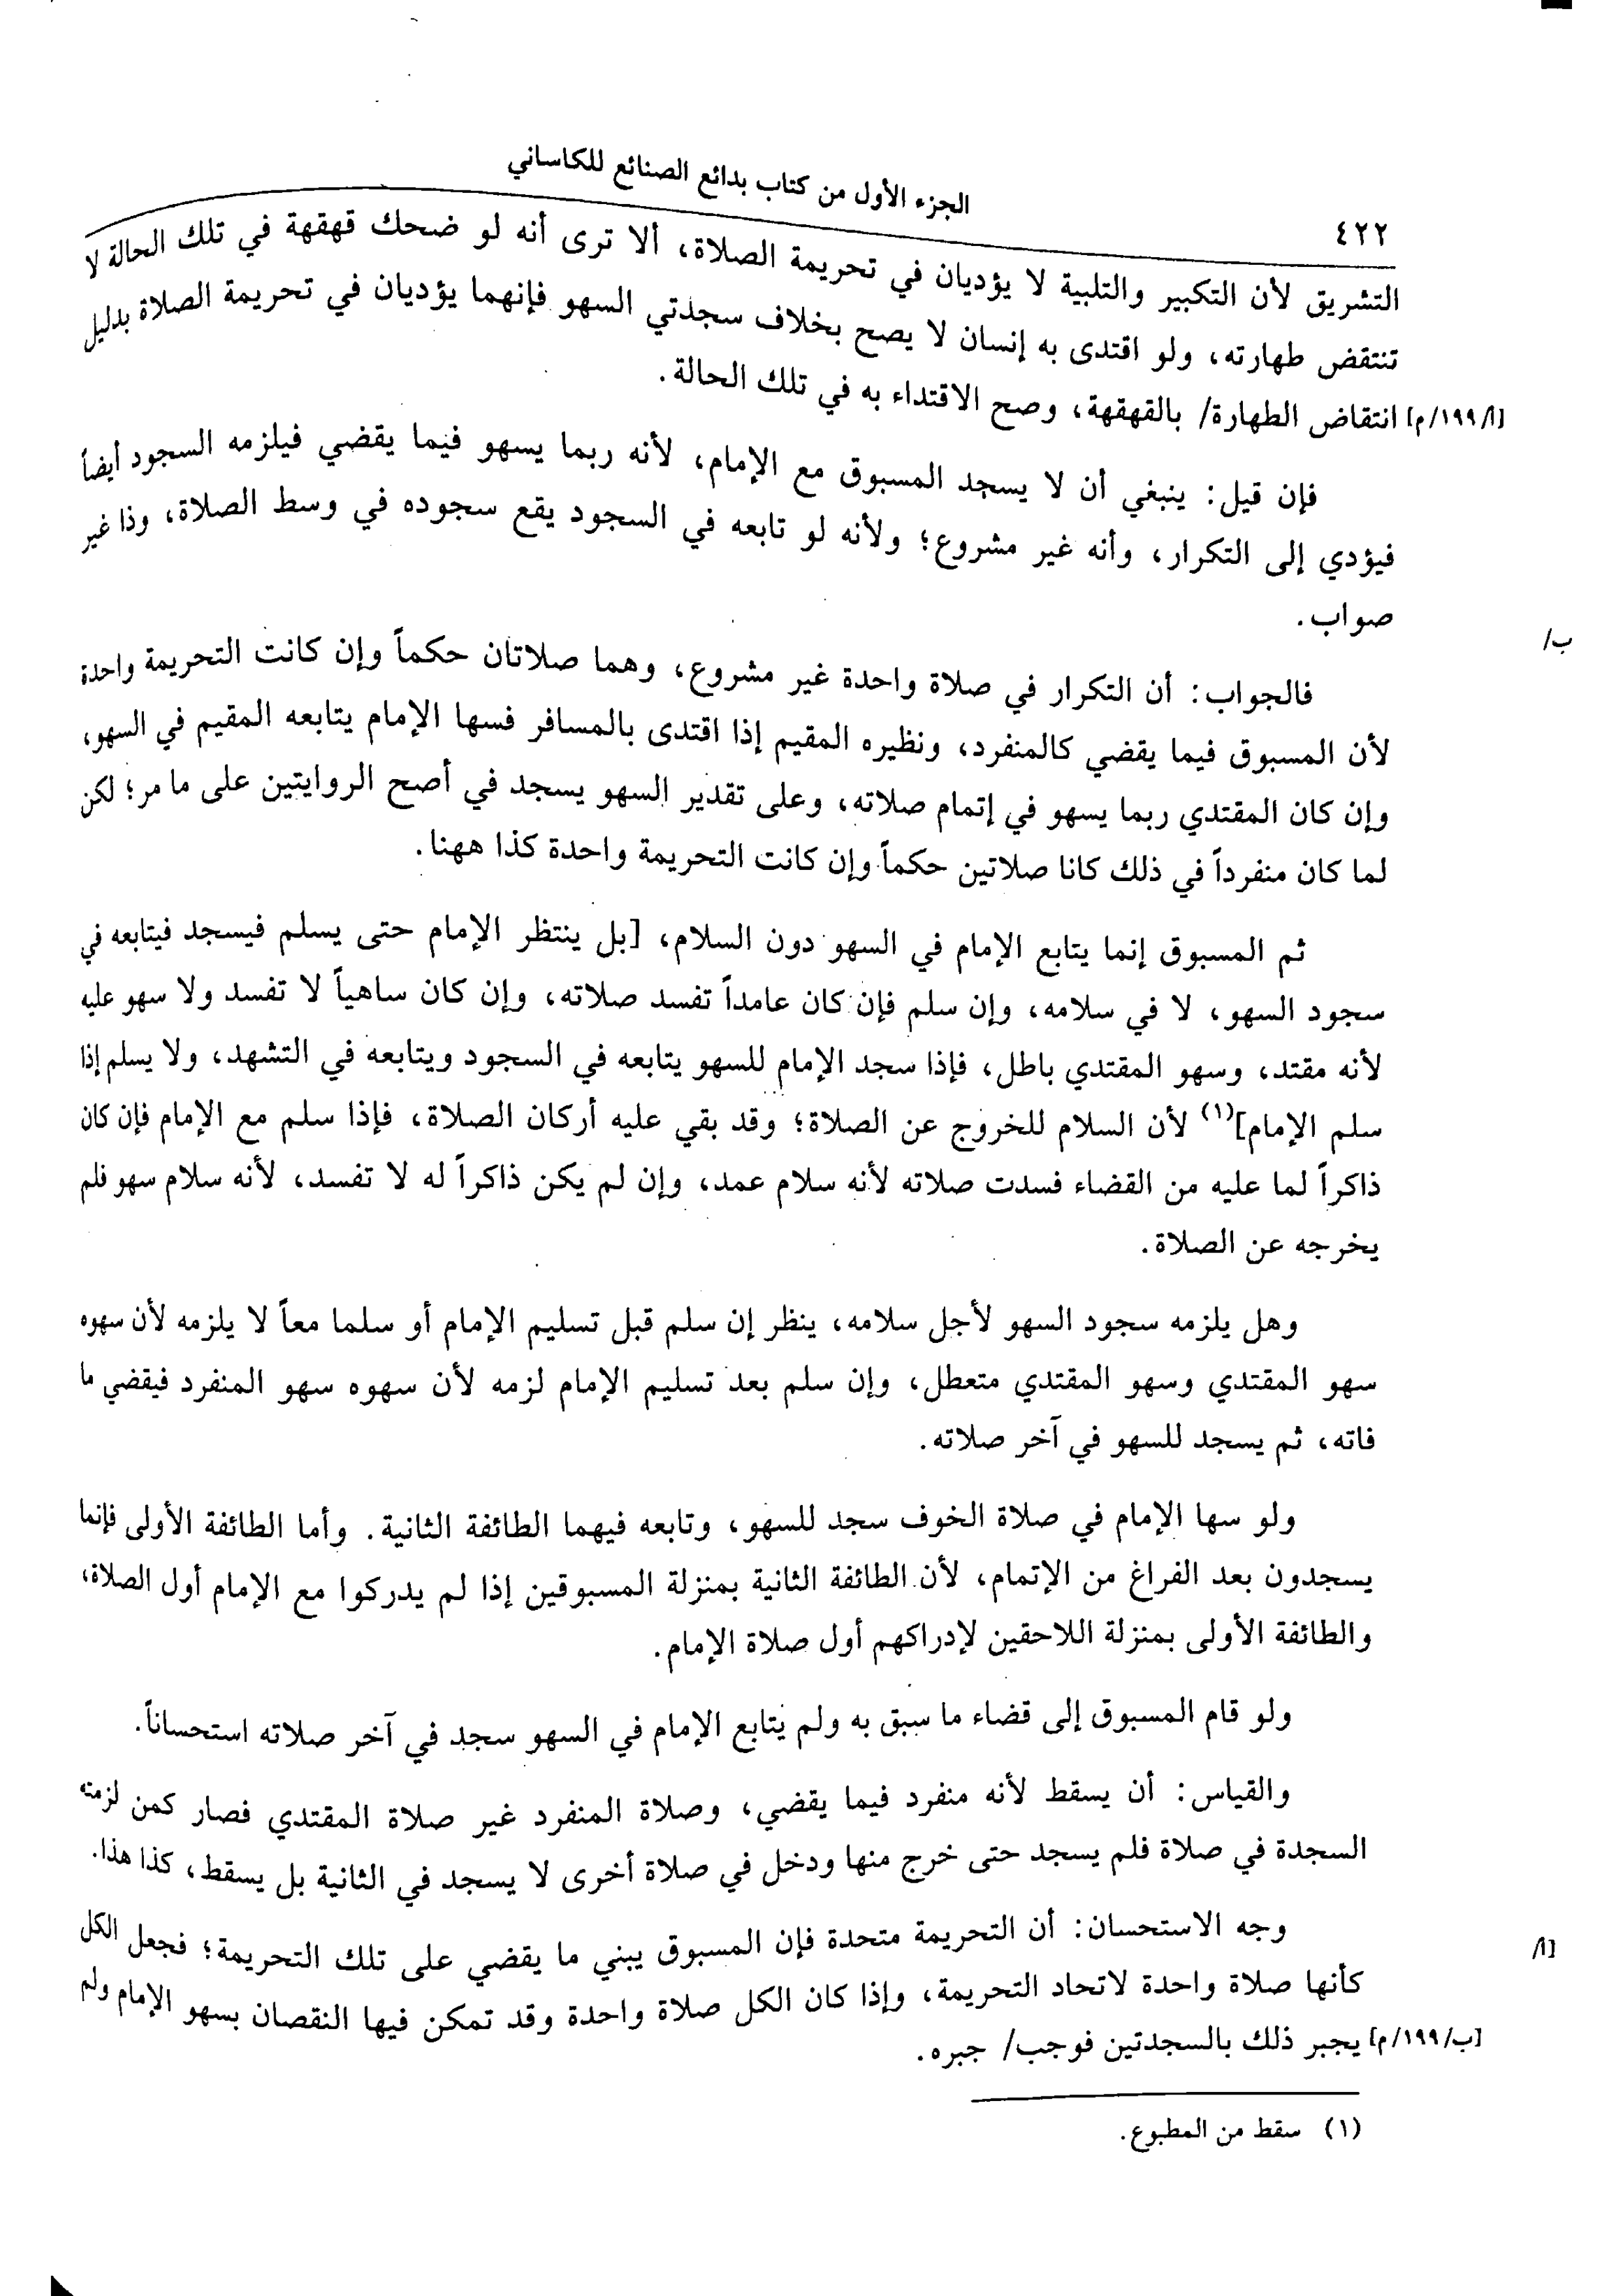 الجزء الأول من كتاب بدائع الصنائع للكاساني
٤٢٢
التشريق لأن التكبير والتلبية لا يؤديان في تحريمة الصلاة، ألا ترى أنه لو ضحك قهقهة في تلك الحالة لا
تنتقض طهارته، ولو اقتدى به إنسان لا يصح بخلاف سجدتي السهو فإنهما يؤديان في تحريمة الصلاة بدليل
[أ/١٩٩/م] انتقاض الطهارة/ بالقهقهة، وصح الاقتداء به في تلك الحالة.
فإن قيل: ينبغي أن لا يسجد المسبوق مع الإمام، لأنه ربما يسهو فيما يقضي فيلزمه السجود أيضاً
فيؤدي إلى التكرار، وأنه غير مشروع؛ ولأنه لو تابعه في السجود يقع سجوده في وسط الصلاة، وذا غير
صواب.
ب/
فالجواب: أن التكرار في صلاة واحدة غير مشروع، وهما صلاتان حكماً وإن كانت التحريمة واحدة
لأن المسبوق فيما يقضي كالمنفرد، ونظيره المقيم إذا اقتدى بالمسافر فسها الإمام يتابعه المقيم في السهو،
وإن كان المقتدي ربما يسهو في إتمام صلاته، وعلى تقدير السهو يسجد في أصح الروايتين على ما مر؛ لكن
لما كان منفرداً في ذلك كانا صلاتين حكماً وإن كانت التحريمة واحدة كذا ههنا.
ثم المسبوق إنما يتابع الإمام في السهو دون السلام، [بل ينتظر الإمام حتى يسلم فيسجد فيتابعه في
سجود السهو، لا في سلامه، وإن سلم فإن كان عامداً تفسد صلاته، وإن كان ساهياً لا تفسد ولا سهو عليه
لأنه مقتد، وسهو المقتدي باطل، فإذا سجد الإمام للسهو يتابعه في السجود ويتابعه في التشهد، ولا يسلم إذا
سلم الإمام](١) لأن السلام للخروج عن الصلاة؛ وقد بقي عليه أركان الصلاة، فإذا سلم مع الإمام فإن كان
ذاكراً لما عليه من القضاء فسدت صلاته لأنه سلام عمد، وإن لم يكن ذاكراً له لا تفسد، لأنه سلام سهو فلم
يخرجه عن الصلاة.
وهل يلزمه سجود السهو لأجل سلامه، ينظر إن سلم قبل تسليم الإمام أو سلما معاً لا يلزمه لأن سهوه
سهو المقتدي وسهو المقتدي متعطل، وإن سلم بعد تسليم الإمام لزمه لأن سهوه سهو المنفرد فيقضي ما
فاته، ثم يسجد للسهو في آخر صلاته.
ولو سها الإمام في صلاة الخوف سجد للسهو، وتابعه فيهما الطائفة الثانية. وأما الطائفة الأولى فإنما
يسجدون بعد الفراغ من الإتمام، لأن الطائفة الثانية بمنزلة المسبوقين إذا لم يدركوا مع الإمام أول الصلاة،
والطائفة الأولى بمنزلة اللاحقين لإدراكهم أول صلاة الإمام.
ولو قام المسبوق إلى قضاء ما سبق به ولم يتابع الإمام في السهو سجد في آخر صلاته استحساناً.
والقياس: أن يسقط لأنه منفرد فيما يقضي، وصلاة المنفرد غير صلاة المقتدي فصار كمن لزمته
السجدة في صلاة فلم يسجد حتى خرج منها ودخل في صلاة أخرى لا يسجد في الثانية بل يسقط، كذا هذا.
وجه الاستحسان: أن التحريمة متحدة فإن المسبوق يبني ما يقضي على تلك التحريمة؛ فجعل الكل
[أ/
كأنها صلاة واحدة لاتحاد التحريمة، وإذا كان الكل صلاة واحدة وقد تمكن فيها النقصان بسهو الإمام ولم
[ب/١٩٩/م] يجبر ذلك بالسجدتين فوجب/ جبره.
(١) سقط من المطبوع.